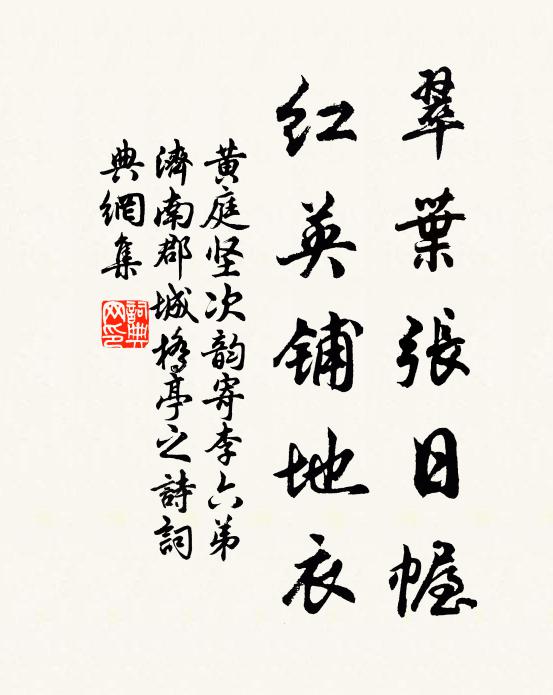 翠葉張日幄
紅英鋪地衣
黄庭坚次韵寄李六弟
濟南郡城橋亭之詩詞
典網集
詞典
网印